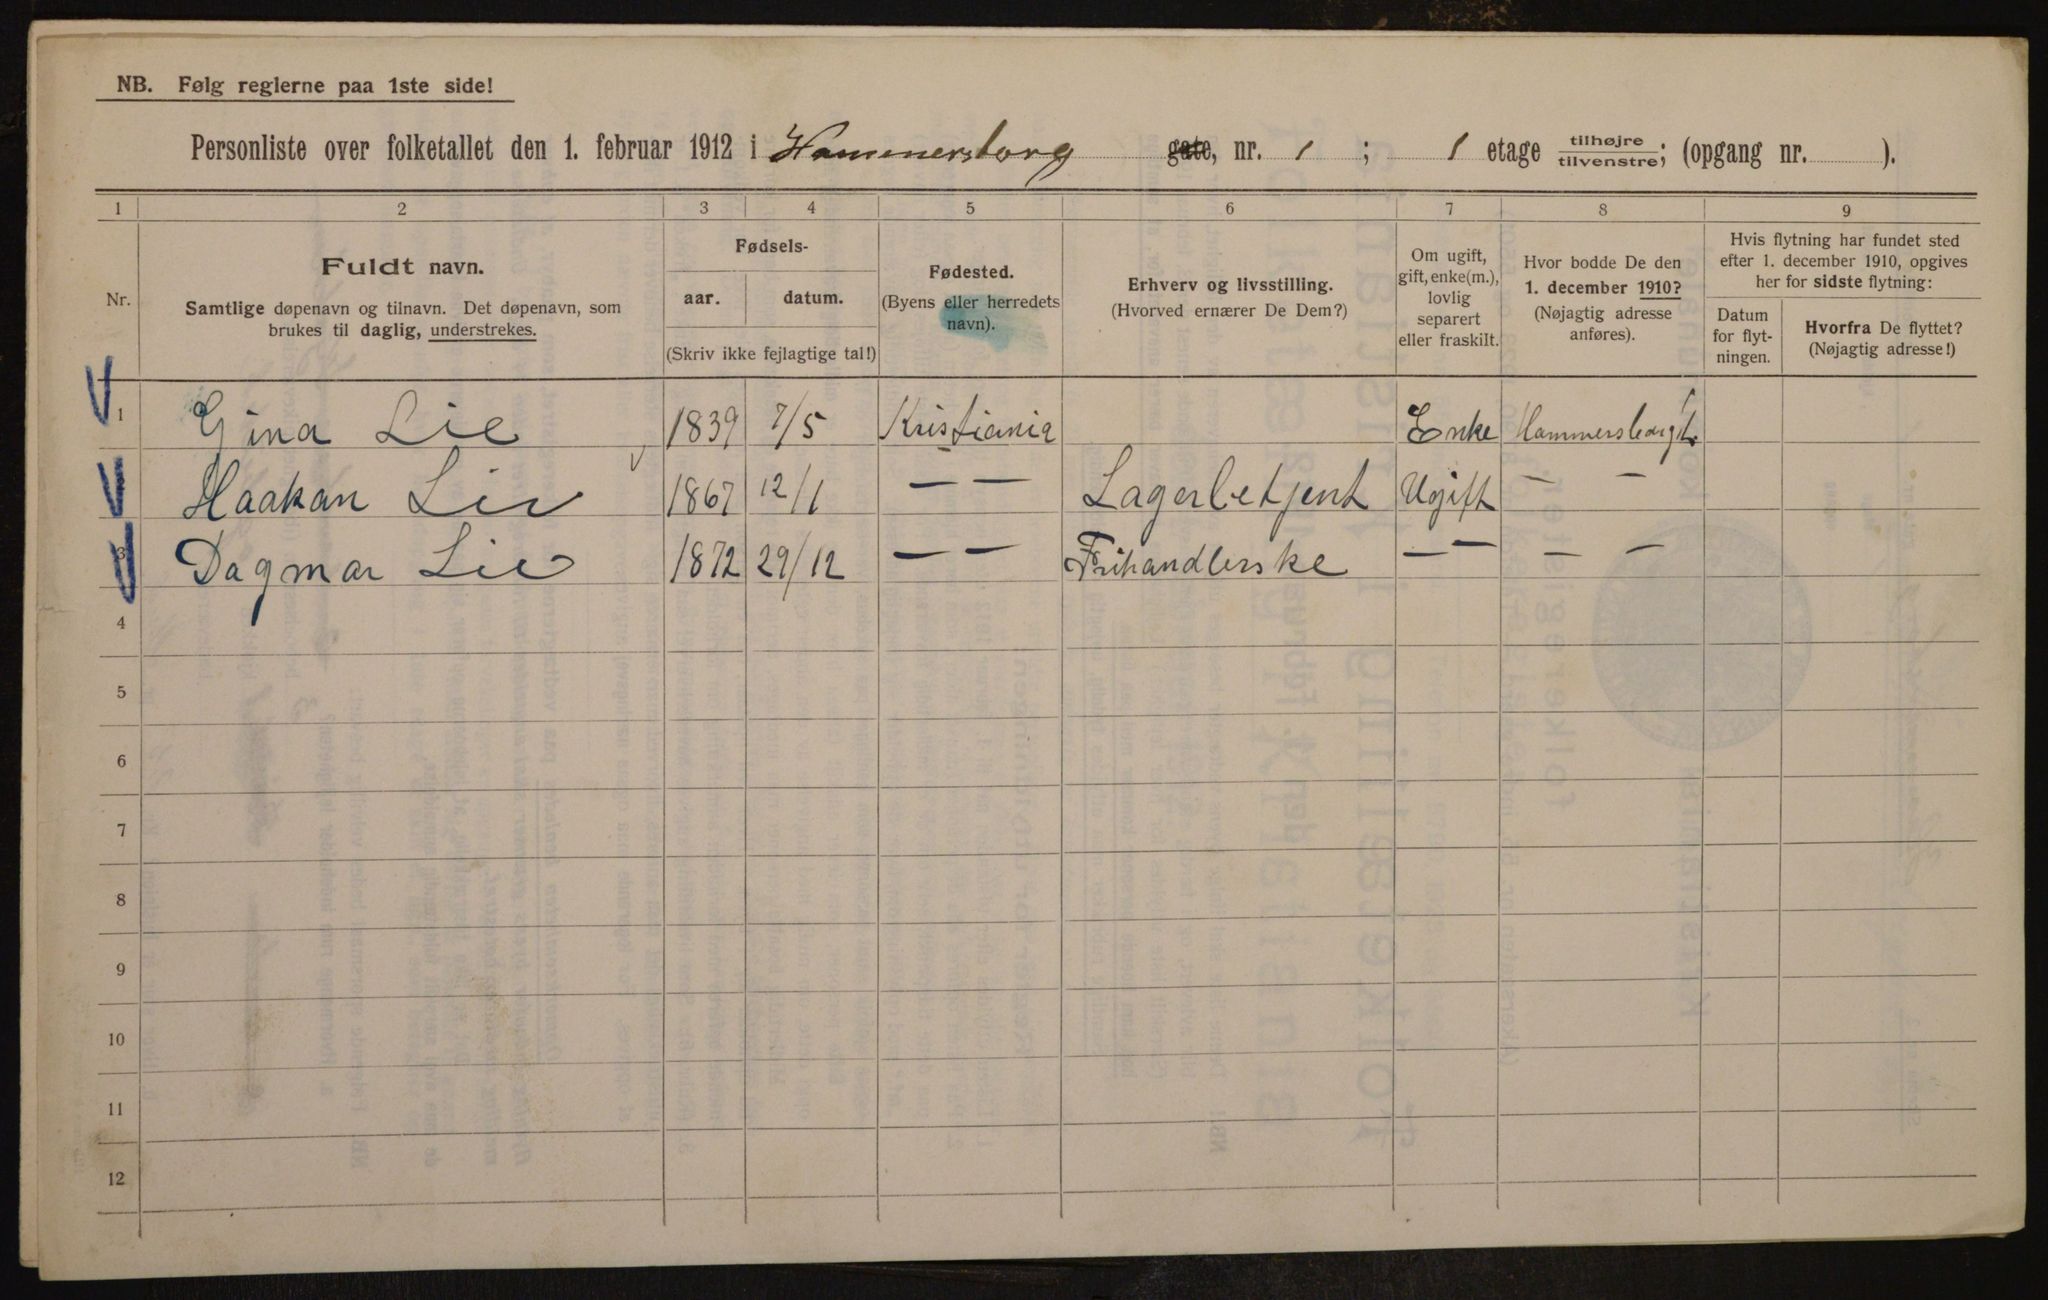 NB. Følg reglerne paa 1ste side!
Personliste over folketallet den 1. februar 1912 i Hammersborg gate, nr. 1 ; 1 etage tilhøjre tilvenstre; (opgang nr. ).
1 2 3 4 5 6 7 8 9
Nr.
Fuldt navn.
Samtlige døpenavn og tilnavn. Det døpenavn, som
brukes til daglig, understrekes.
Fødsels-
aar. datum.
(Skriv ikke fejlagtige tal!)
Fødested.
(Byens eller herredets
navn).
Erhverv og livsstilling.
(Hvorved ernærer De Dem?)
Om ugift,
gift, enke(m.),
lovlig
separert
eller fraskilt.
Hvor bodde De den
1. december 1910?
(Nøjagtig adresse
anføres).
Hvis flytning har fundet sted
efter 1. december 1910, opgives
her for sidste flytning:
Datum
for flyt-
ningen.
Hvorfra De flyttet?
(Nøjagtig adresse!)
1 Gina Lie 1839 7/5 Kristiania Enke Hammersborg 1
Haakan Lie 1867 12/1 — — Lagerbetjent Ugift — —
3 Dagmar Lie 1872 29/12 — — Frihandlerske — — — —
4
5
6
7
8
9
10
11
12